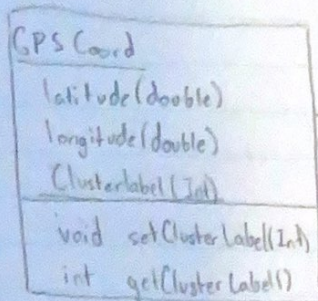 GPS Coord
latitude(double)
longitude(double)
Clusterlabel(Int)
void setClusterLabel(Int)
int getClusterLabel()